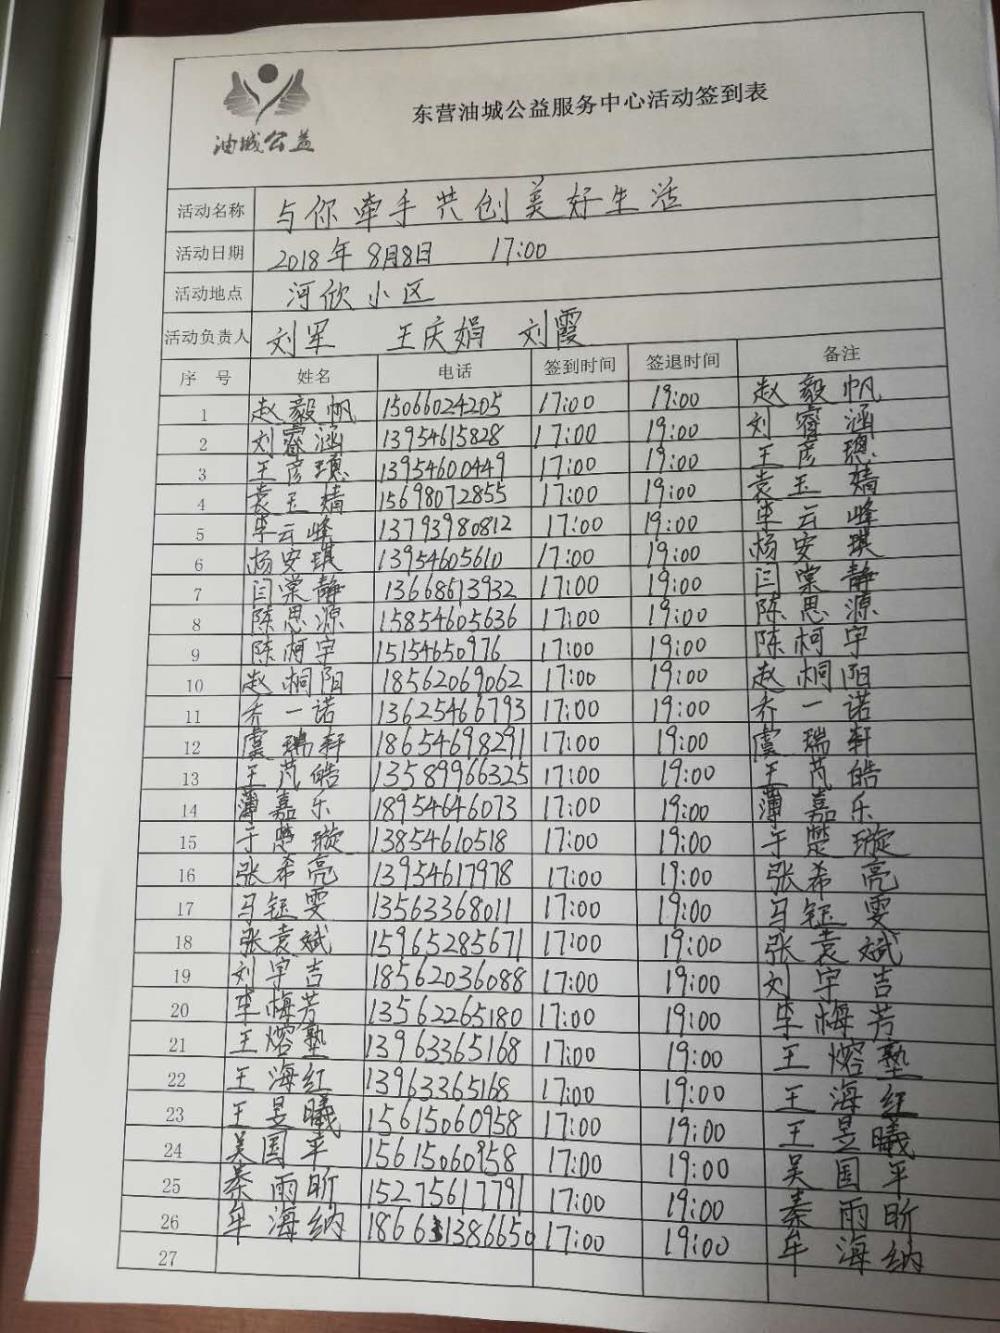 油城公益
东营油城公益服务中心活动签到表
活动名称 与你牵手共创美好生活
活动日期 2018年8月8日 17:00
活动地点 河欣小区
活动负责人 刘军 王庆娟 刘霞
序号 姓名 电话 签到时间 签退时间 备注
1 赵毅帆 15066024205 17:00 19:00 赵毅帆
2 刘睿涵 13954615828 17:00 19:00 刘睿涵
3 王彦璁 13954600449 17:00 19:00 王彦璁
4 袁玉婧 15698072855 17:00 19:00 袁玉婧
5 李云峰 13793980812 17:00 19:00 李云峰
6 杨安琪 13954605610 17:00 19:00 杨安琪
7 闫棠静 13668613932 17:00 19:00 闫棠静
8 陈思源 15854605636 17:00 19:00 陈思源
9 陈柯宇 15154650976 17:00 19:00 陈柯宇
10 赵桐阳 18562069062 17:00 19:00 赵桐阳
11 乔一诺 13625466793 17:00 19:00 乔一诺
12 虞瑞轩 18654698291 17:00 19:00 虞瑞轩
13 王芃皓 13589966325 17:00 19:00 王芃皓
14 薄嘉乐 18954646073 17:00 19:00 薄嘉乐
15 于楚璇 13854610518 17:00 19:00 于楚璇
16 张希亮 13954617978 17:00 19:00 张希亮
17 马钰雯 13563368011 17:00 19:00 马钰雯
18 张袁斌 15965285671 17:00 19:00 张袁斌
19 刘宇吉 18562036088 17:00 19:00 刘宇吉
20 李梅芳 13562265180 17:00 19:00 李梅芳
21 王熔塾 13963365168 17:00 19:00 王熔塾
22 王海红 13963365168 17:00 19:00 王海红
23 王昱曦 15615060958 17:00 19:00 王昱曦
24 吴国平 15615060958 17:00 19:00 吴国平
25 秦雨昕 15275617791 17:00 19:00 秦雨昕
26 牟海纳 17:00 19:00 牟海纳
27